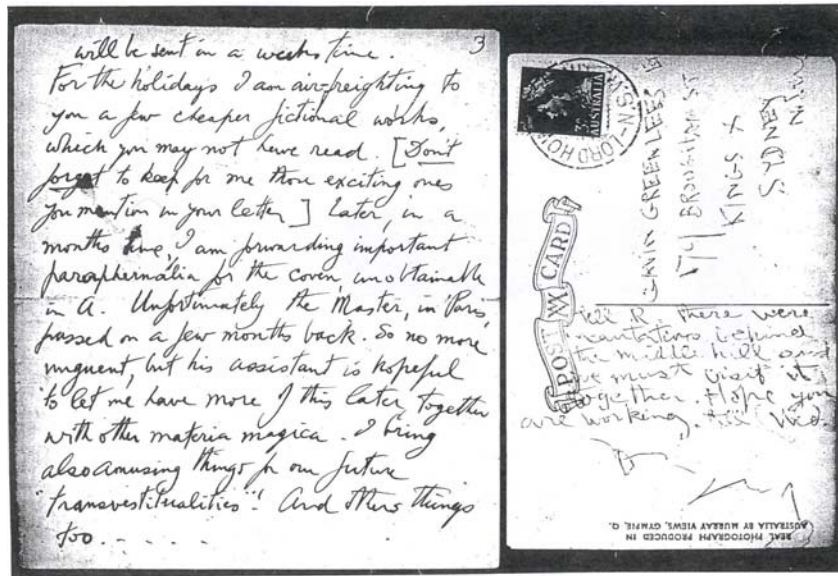 3
will be sent in a weeks time.
For the holidays I am air-freighting to
you a few cheaper fictional works,
which you may not have read. [Don't
forget to keep for me those exciting ones
you mention in your letter] Later, in a
months time, I am forwarding important
paraphernalia for the coven, unobtainable
in A. Unfortunately the Master, in Paris,
passed on a few months back. So no more
unguent, but his assistant is hopeful
to let me have more of this later, together
with other materia magica. I bring
also amusing things for our future
"transvestitualities"! And other things
too.....
LORD HOW N.S.W.
AUSTRALIA
GAVIN GREENLEES
BROUGHAM ST
KINGS X
SYDNEY
N.S.W
POST CARD
R. there were
behind
the middle hill and
we must visit it
together. Hope you
are working.
REAL PHOTOGRAPH PRODUCED IN
AUSTRALIA BY MURRAY VIEWS, GYMPIE, Q.